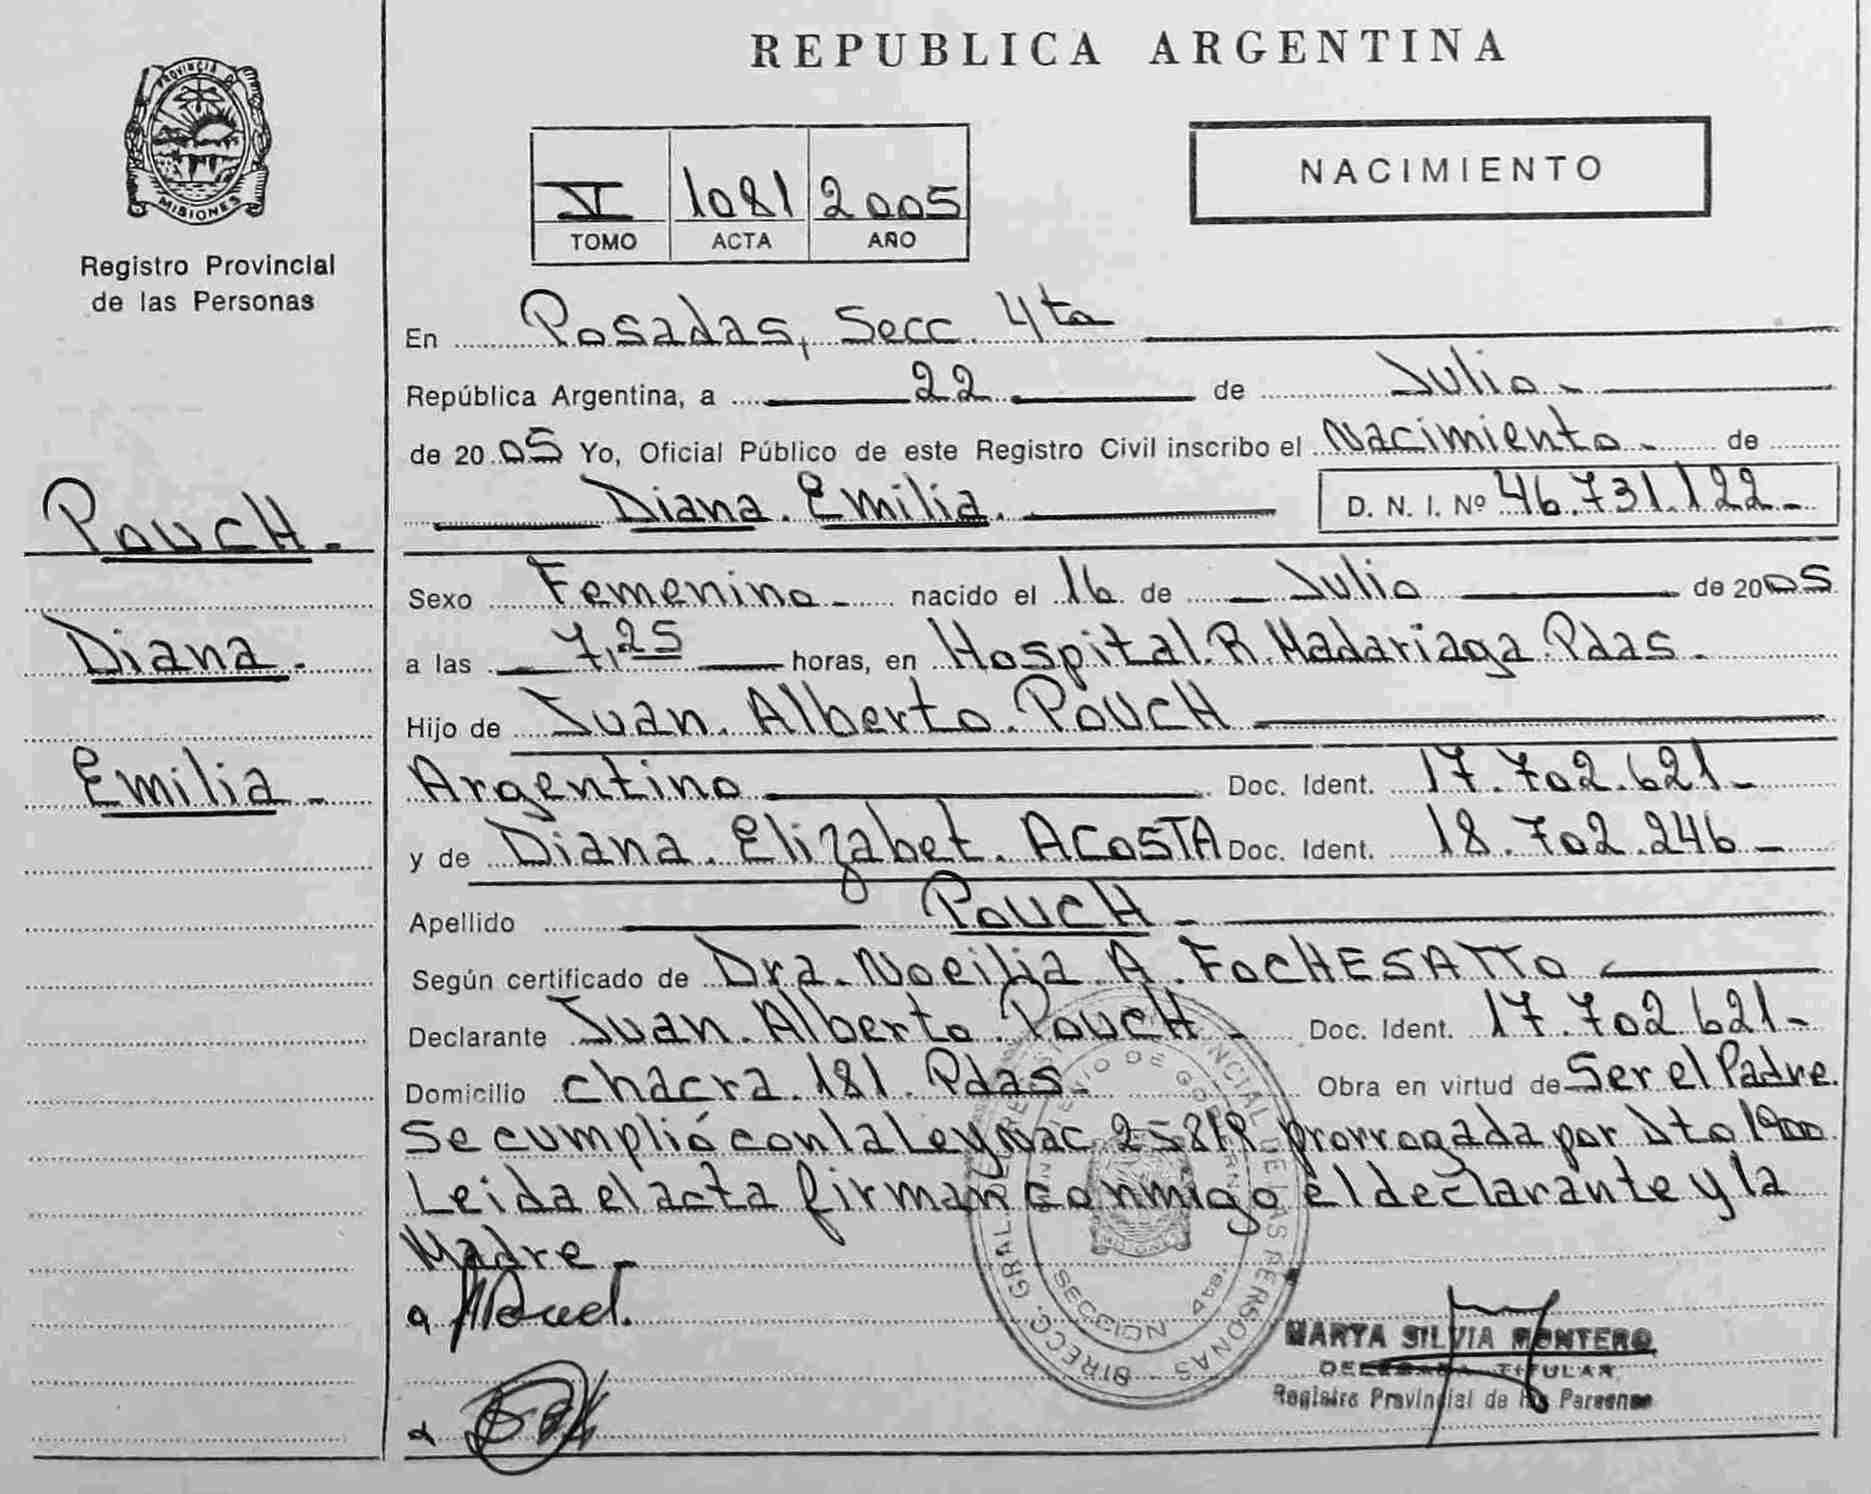 REPUBLICA ARGENTINA
PROVINCIA DE
MISIONES
Registro Provincial
de las Personas
V 1081 2005
TOMO ACTA AÑO
NACIMIENTO
En Posadas, Secc. 4ta
República Argentina, a 22 de Julio
de 2005 Yo, Oficial Público de este Registro Civil inscribo el Nacimiento de
Diana Emilia D. N. I. Nº 46.731.122
POUCH.
Diana.
Emilia
Sexo Femenino nacido el 16 de Julio de 2005
a las 7,25 horas, en Hospital R. Madariaga Pdas.
Hijo de Juan Alberto POUCH
Argentino Doc. Ident. 17.702.621
y de Diana Elizabet ACOSTA Doc. Ident. 18.702.246
Apellido POUCH
Según certificado de Dra. Noeilia A. FOCHESATTO
Declarante Juan Alberto POUCH Doc. Ident. 17.702.621
Domicilio chacra 181 Pdas. Obra en virtud de Ser el Padre.
Se cumplió con la Ley Nac 25819 prorrogada por Dto 1900
Leida el acta firman conmigo el declarante y la
Madre
MARTA SILVIA MONTERO
DELEGADA TITULAR
Registro Provincial de las Personas